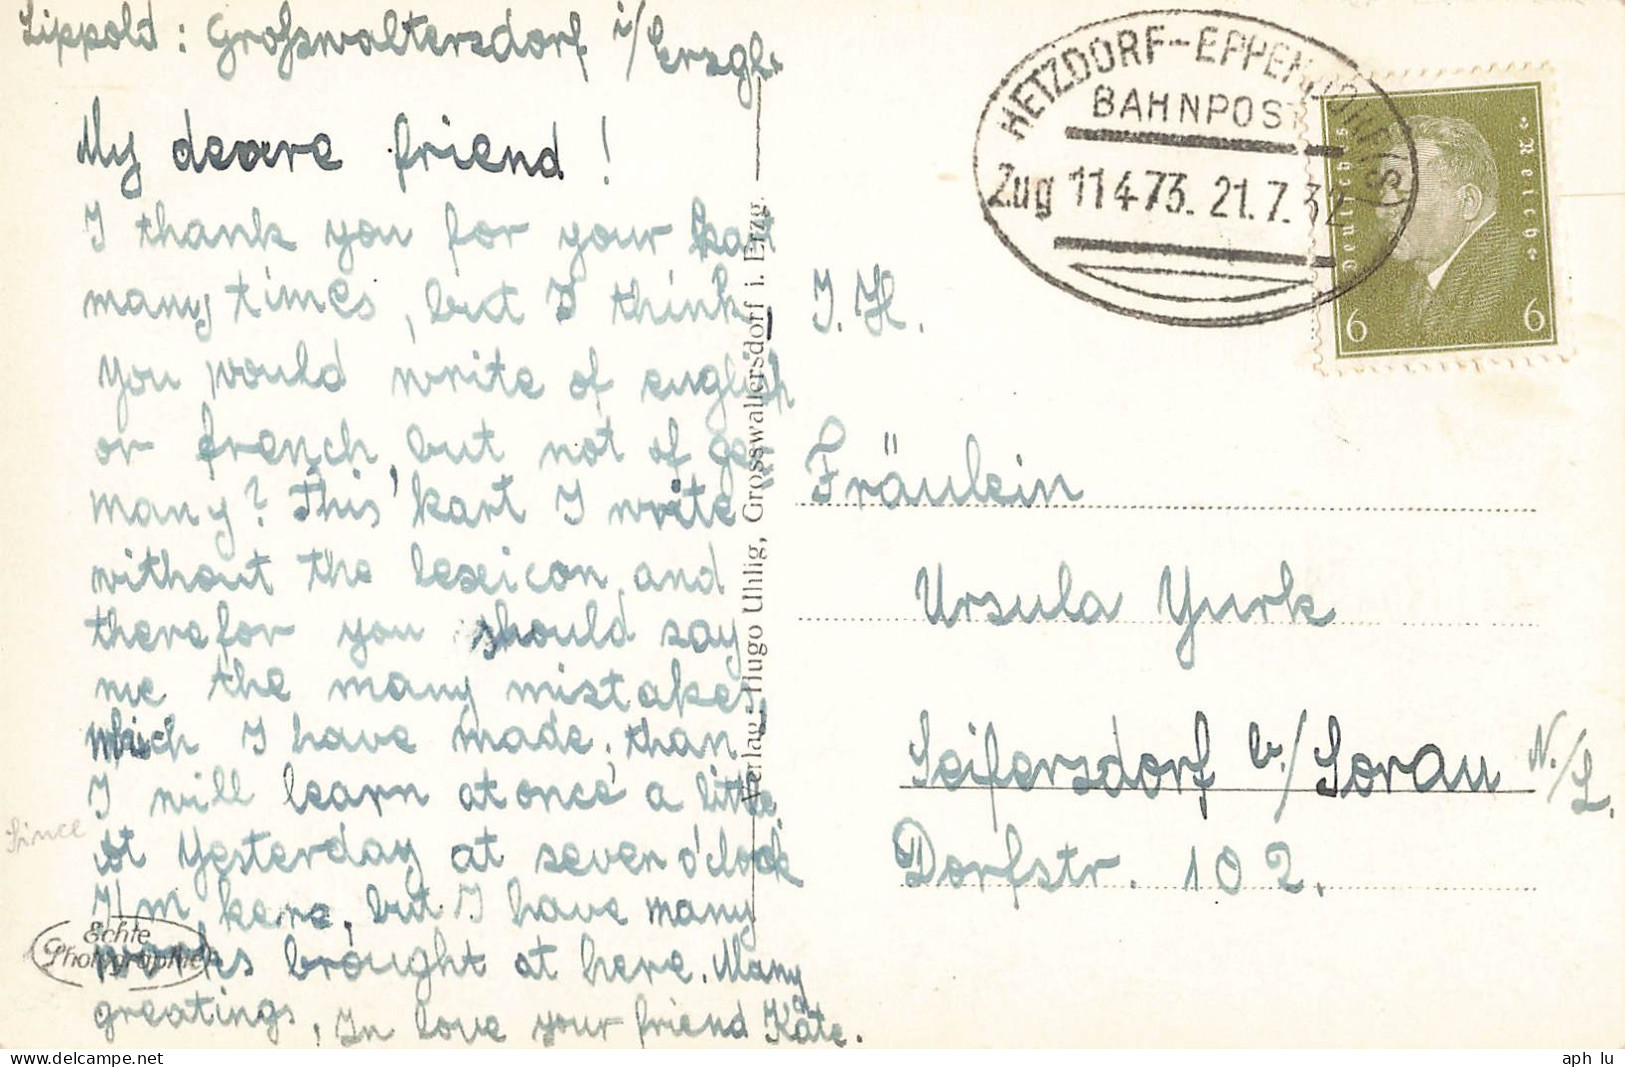 Lippold: Großwaltersdorf i/Erzgb.
My deare friend!
I thank you for your kart
many times, but I think
you would write of english
or french, but not of ger
many? This kart I write
without the lexicon, and
therefor you should say
me the many mistakes,
which I have made, than
I will learn at once a little.
Since
at Yesterday at seven o'clock
I'm here, but I have many
works brought at here. Many
greatings, In love your friend Käte.
Echte
Photographie
Verlag: Hugo Uhlig, Grosswaltersdorf i. Erzg.
HETZDORF-EPPENDORF (S)
BAHNPOST
Zug 11473. 21.7.32
Deutsches Reich
6 6
I. H.
Fräulein
Ursula Yurk
Seifersdorf b./Sorau N./L.
Dorfstr. 102.
aph lu